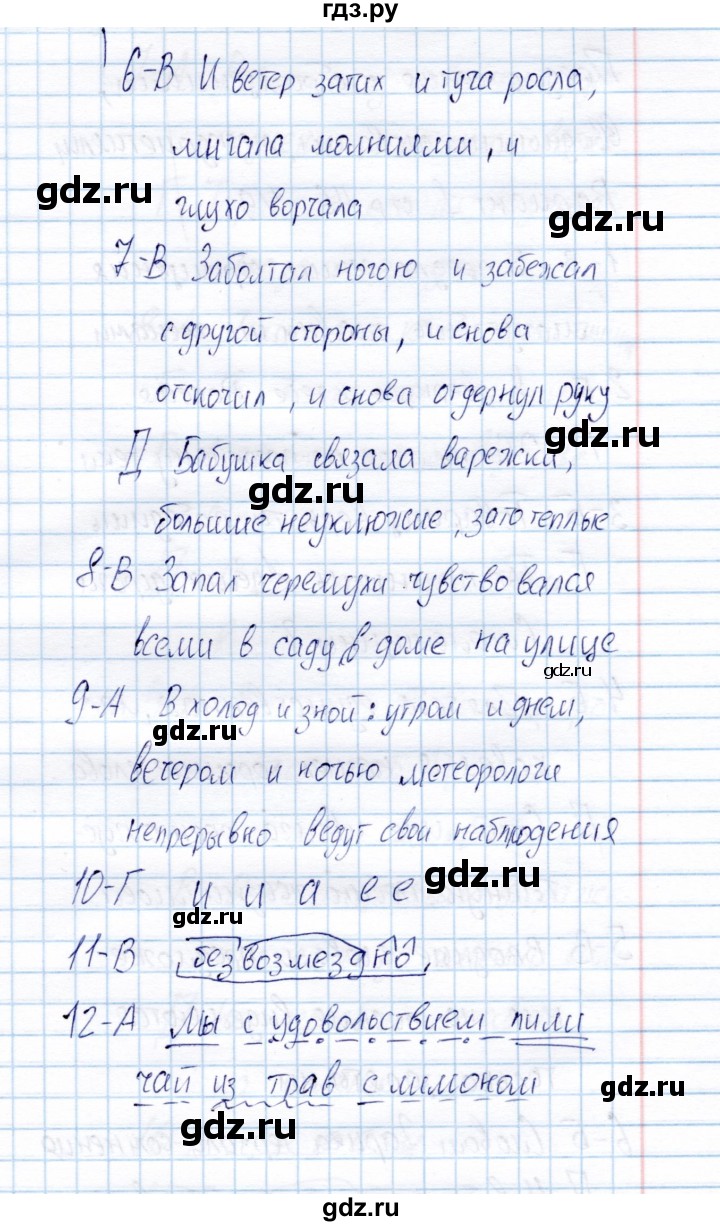 гдз.ру
6-В И ветер затих и туча росла,
мигала молниями, и
gdz.ru
gdz.ru
глухо ворчала
7-В Заболтал ногою и забежал
gdz.ru
с другой стороны, и снова
отскочил, и снова отдернул руку
Д Бабушка связала варежки,
gdz.ru
gdz.ru
большие неуклюжие, зато теплые
8-В Запах черемухи чувствовался
всеми в саду, в доме на улице
gdz.ru
9-А. В холод и зной: утром и днем,
gdz.ru
вечером и ночью метеорологи
непрерывно ведут свои наблюдения
10-Г и и а е е
gdz.ru
gdz.ru
11-В безвозмездно,
12-А Мы с удовольствием пили
чай из трав с лимоном
gdz.ru
gdz.ru
gdz.ru